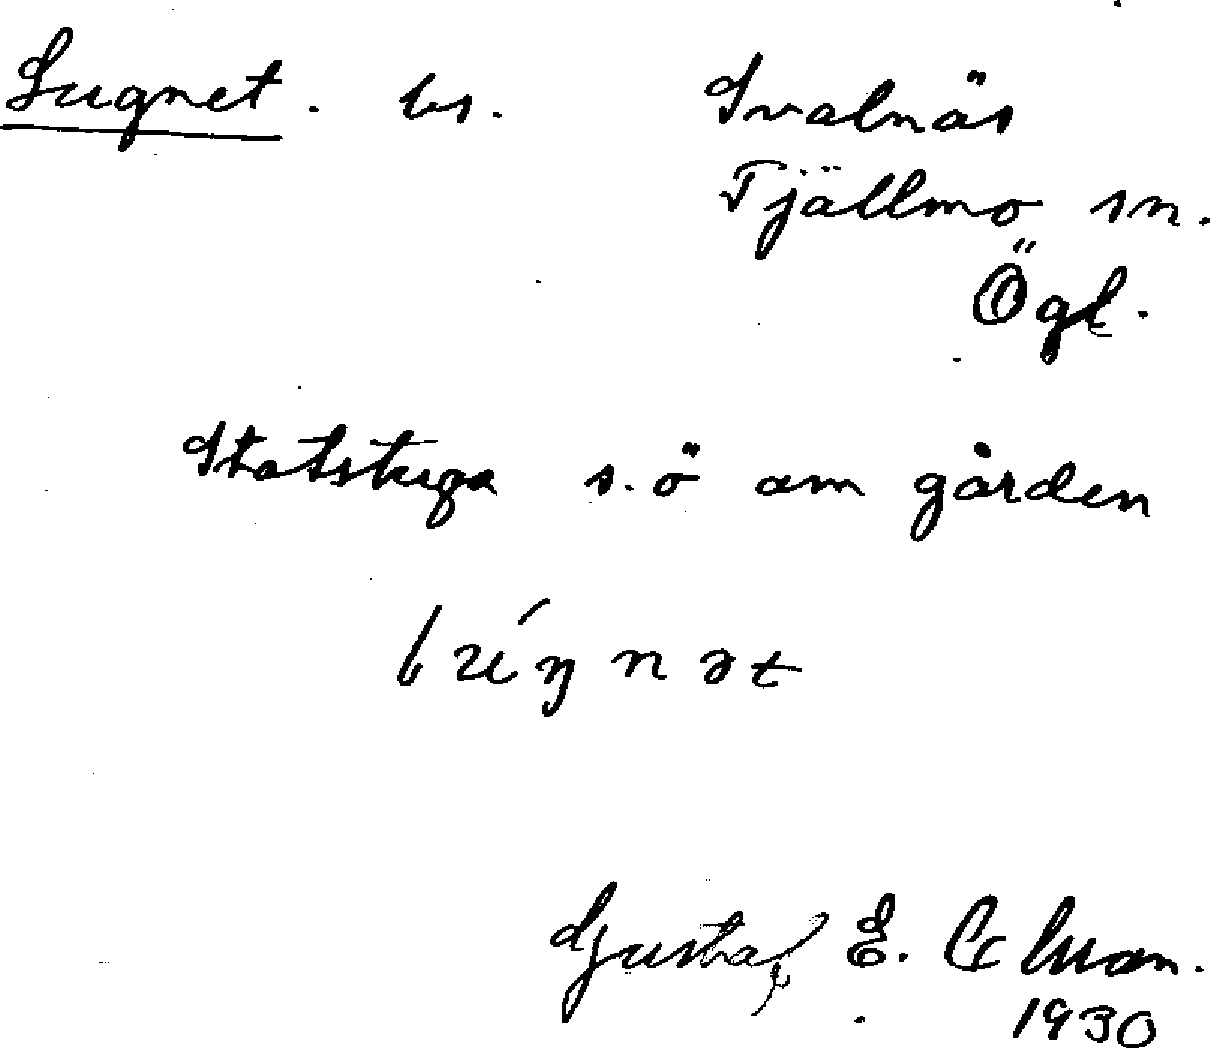 Lugnet. ls. Svalnäs
Tjällmo sn.
Ögl.
Statstuga s.ö om gården
Gustaf E.
1930